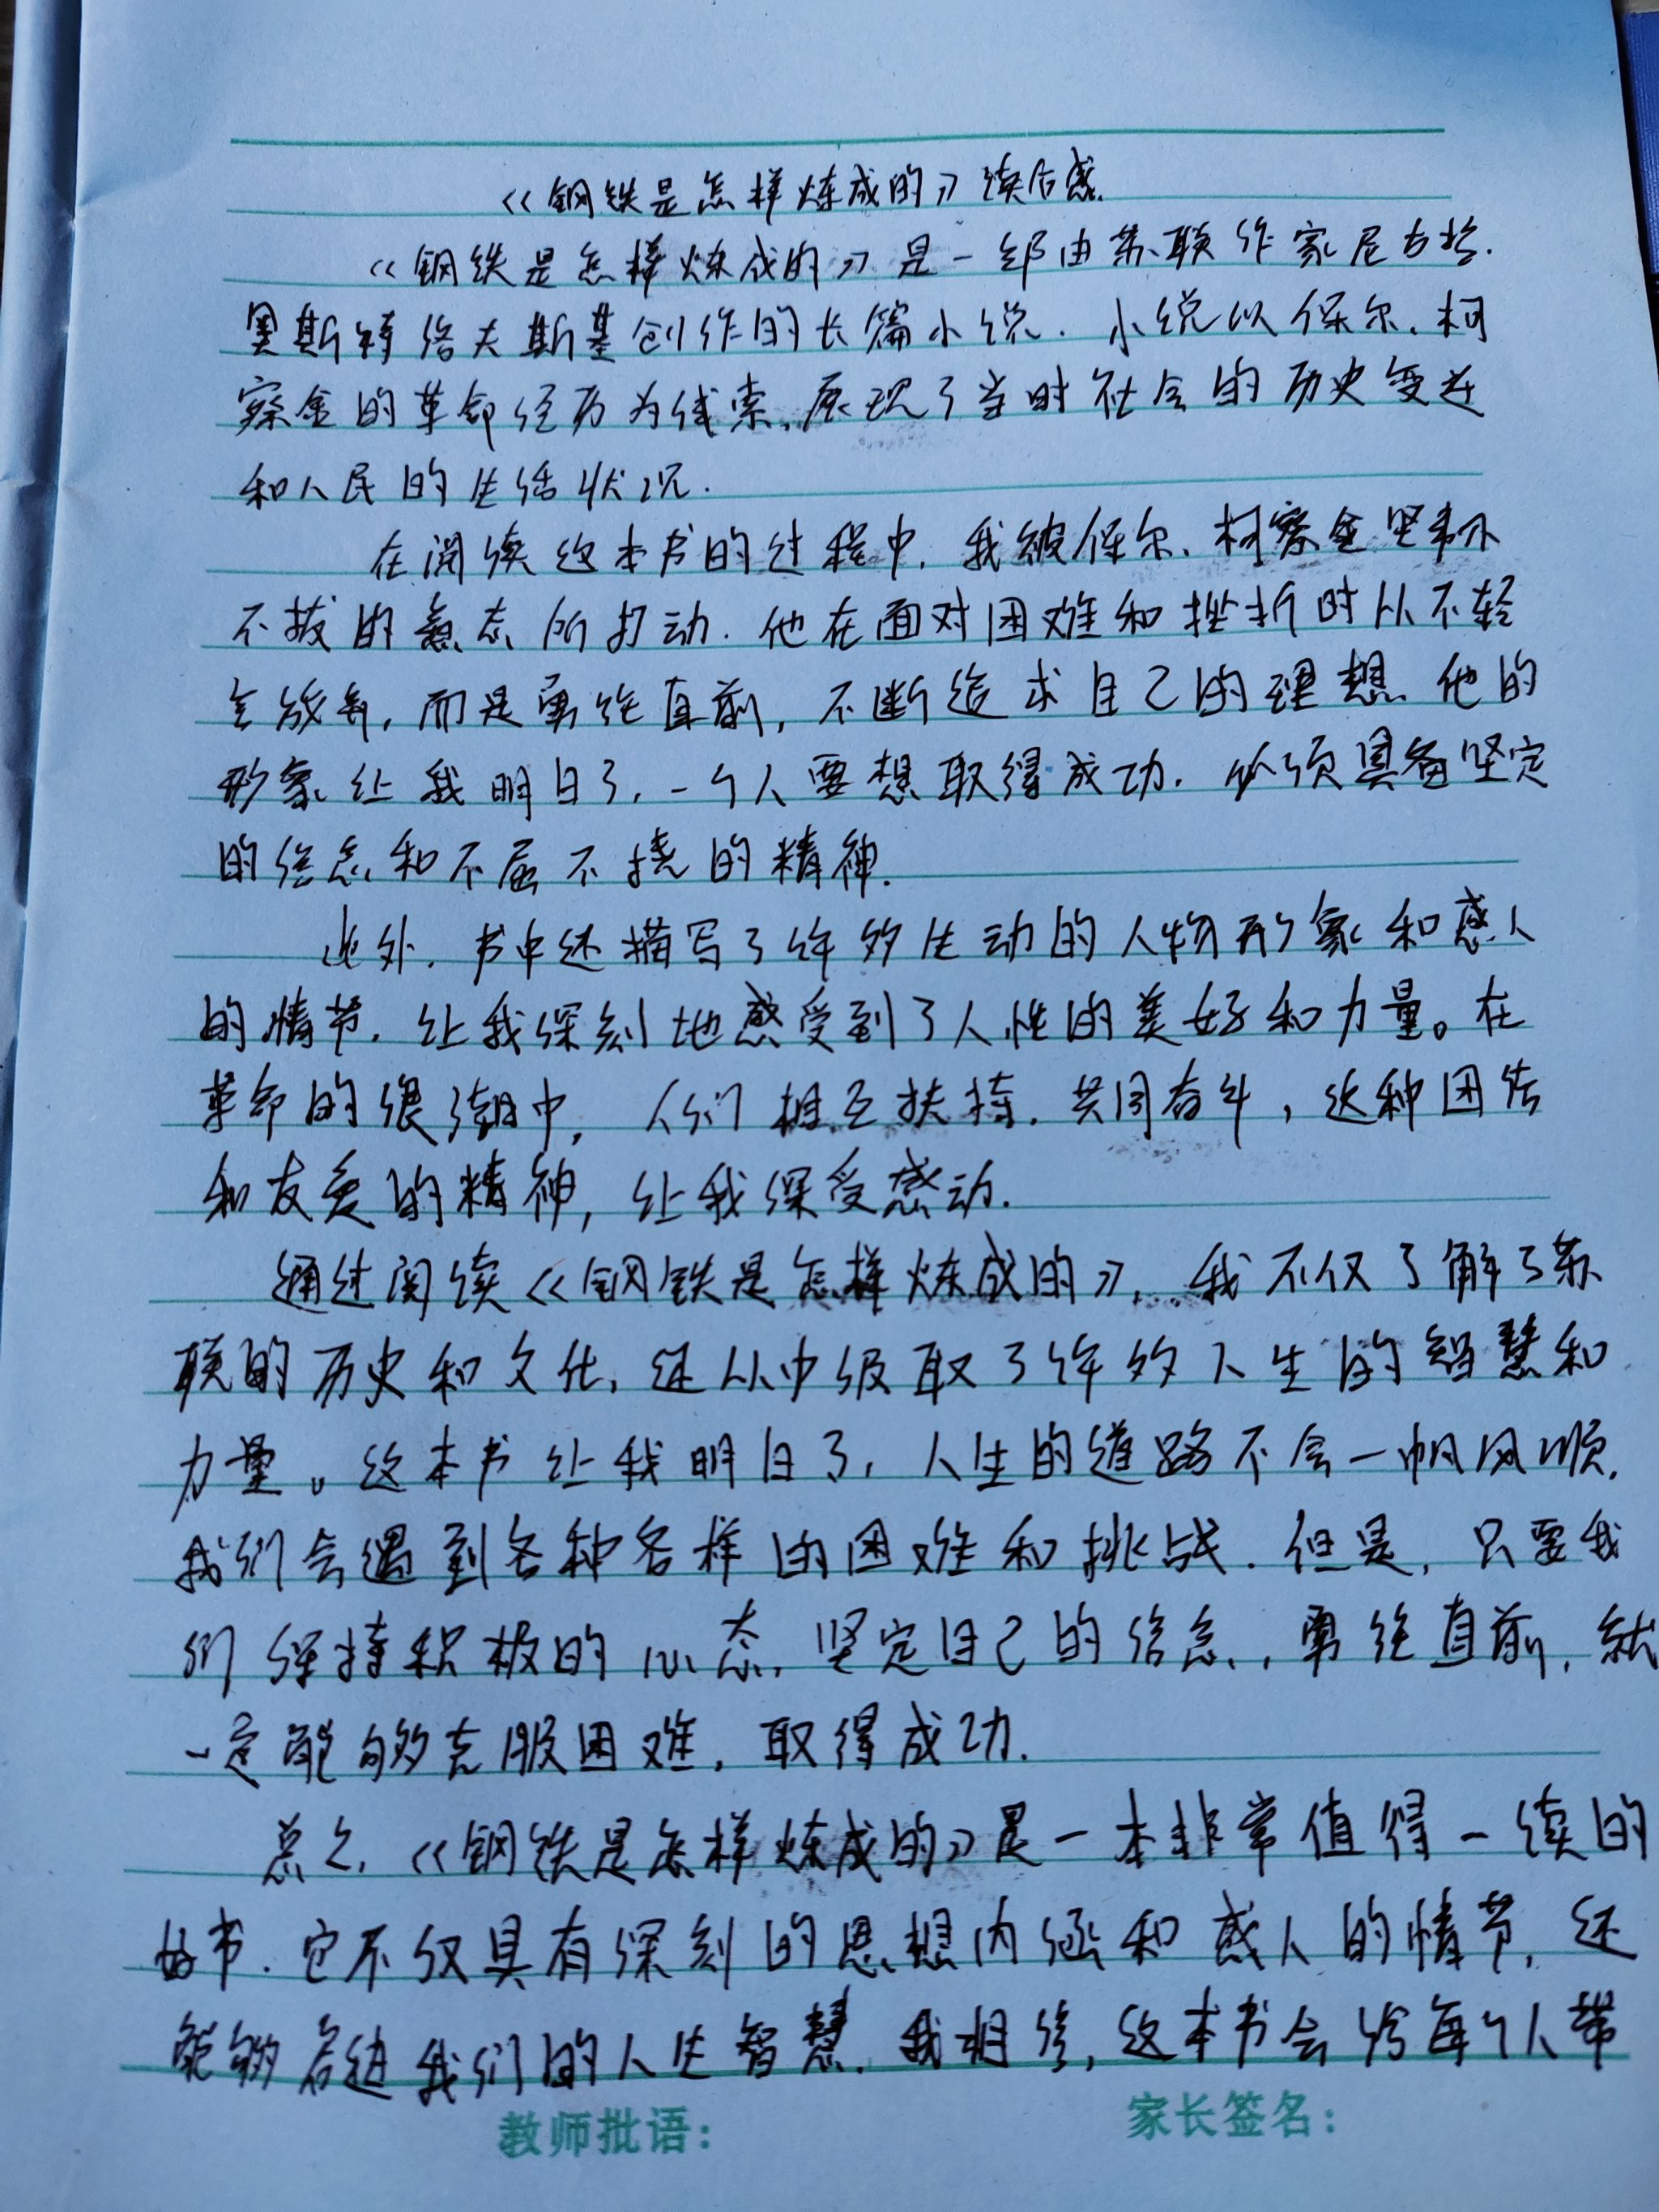 《钢铁是怎样炼成的》读后感.
《钢铁是怎样炼成的》是一部由苏联作家尼古拉.
奥斯特洛夫斯基创作的长篇小说. 小说以保尔.柯
察金的革命经历为线索,展现了当时社会的历史变迁
和人民的生活状况.
在阅读这本书的过程中,我被保尔.柯察金坚韧不
不拔的意志所打动. 他在面对困难和挫折时从不轻
言放弃,而是勇往直前,不断追求自己的理想. 他的
形象让我明白了,一个人要想取得成功.必须具备坚定
的信念和不屈不挠的精神.
此外,书中还描写了许多生动的人物形象和感人
的情节,让我深刻地感受到了人性的美好和力量。在
革命的浪潮中,人们相互扶持.共同奋斗,这种团结
和友爱的精神,让我深受感动.
通过阅读《钢铁是怎样炼成的》,我不仅了解了苏
联的历史和文化,还从中汲取了许多人生的智慧和
力量。这本书让我明白了,人生的道路不会一帆风顺,
我们会遇到各种各样的困难和挑战.但是,只要我
们保持积极的心态,坚定自己的信念,勇往直前,就
一定能够克服困难,取得成功.
总之,《钢铁是怎样炼成的》是一本非常值得一读的
好书.它不仅具有深刻的思想内涵和感人的情节,还
能够启迪我们的人生智慧.我相信,这本书会给每个人带
教师批语: 家长签名: